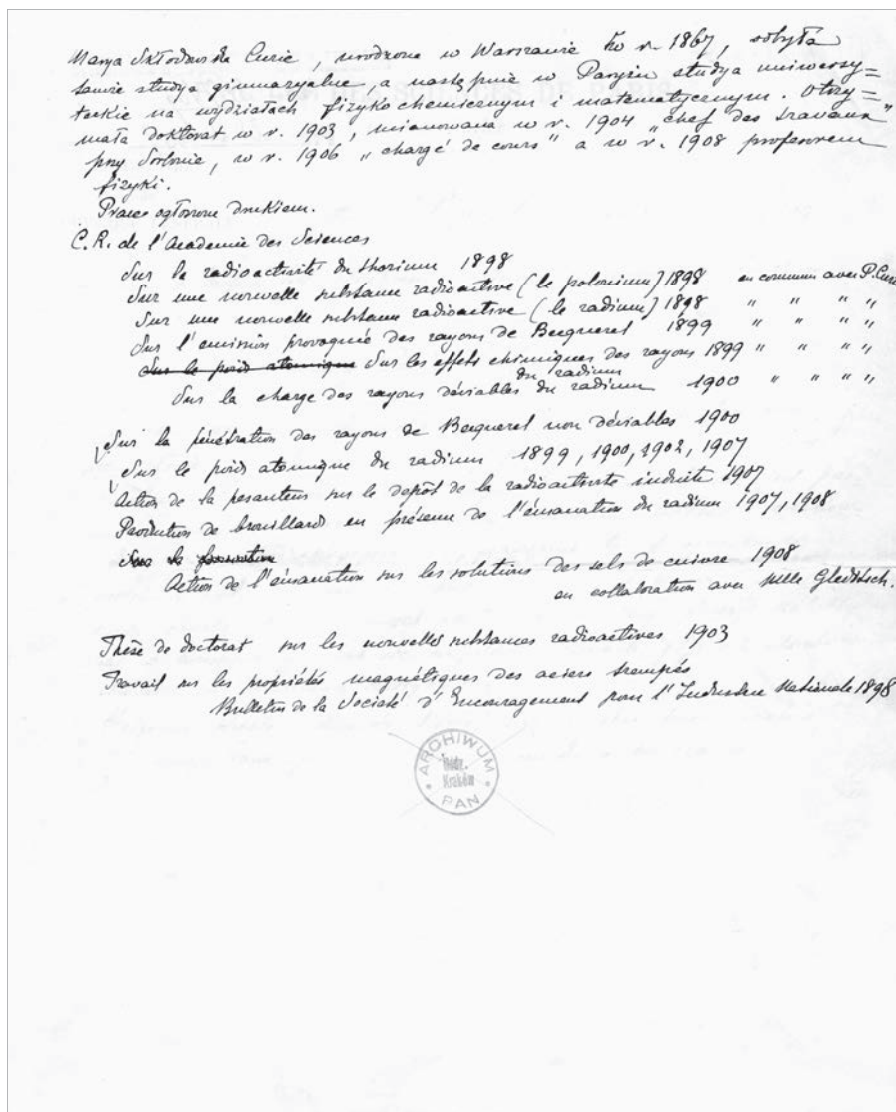 Marya Skłodowska Curie, urodzona w Warszawie w r. 1867, odbyła
tamże studya gimnazyalne, a następnie w Paryżu studya uniwersy=
teckie na wydziałach fizyko chemicznym i matematycznym. Otrzy=
mała doktorat w r. 1903, mianowana w r. 1904 „chef des travaux"
przy Sorbonie, w r. 1906 „chargé de cours" a w r. 1908 profesorem
fizyki.
Prace ogłoszone drukiem.
C. R. de l'Academie des Sciences
Sur la radioactivité du thorium 1898
Sur une nouvelle substance radioactive (le polonium) 1898 en commun avec P. Curie
Sur une nouvelle substance radioactive (le radium) 1898 " " " "
Sur l'emission provoquée des rayons de Becquerel 1899 " " " "
Sur le poids atomique Sur les effets chimiques des rayons 1899 " " " "
du radium
Sur la charge des rayons déviables du radium 1900 " " " "
Sur la pénétration des rayons de Becquerel non déviables 1900
Sur le poids atomique du radium 1899, 1900, 1902, 1907
Action de la pesanteur sur le depôt de la radioactivité induite 1907
Production de brouillard en présence de l'émanation du radium 1907, 1908
Sur la formation
Action de l'émanation sur les solutions des sels de cuivre 1908
en collaboration avec Mlle Gleditsch.
Thèse de doctorat sur les nouvelles substances radioactives 1903
Travail sur les propriétés magnétiques des aciers trempés
Bulletin de la Société d'Encouragement pour l'Industrie Nationale 1898
ARCHIWUM
Kraków
PAN